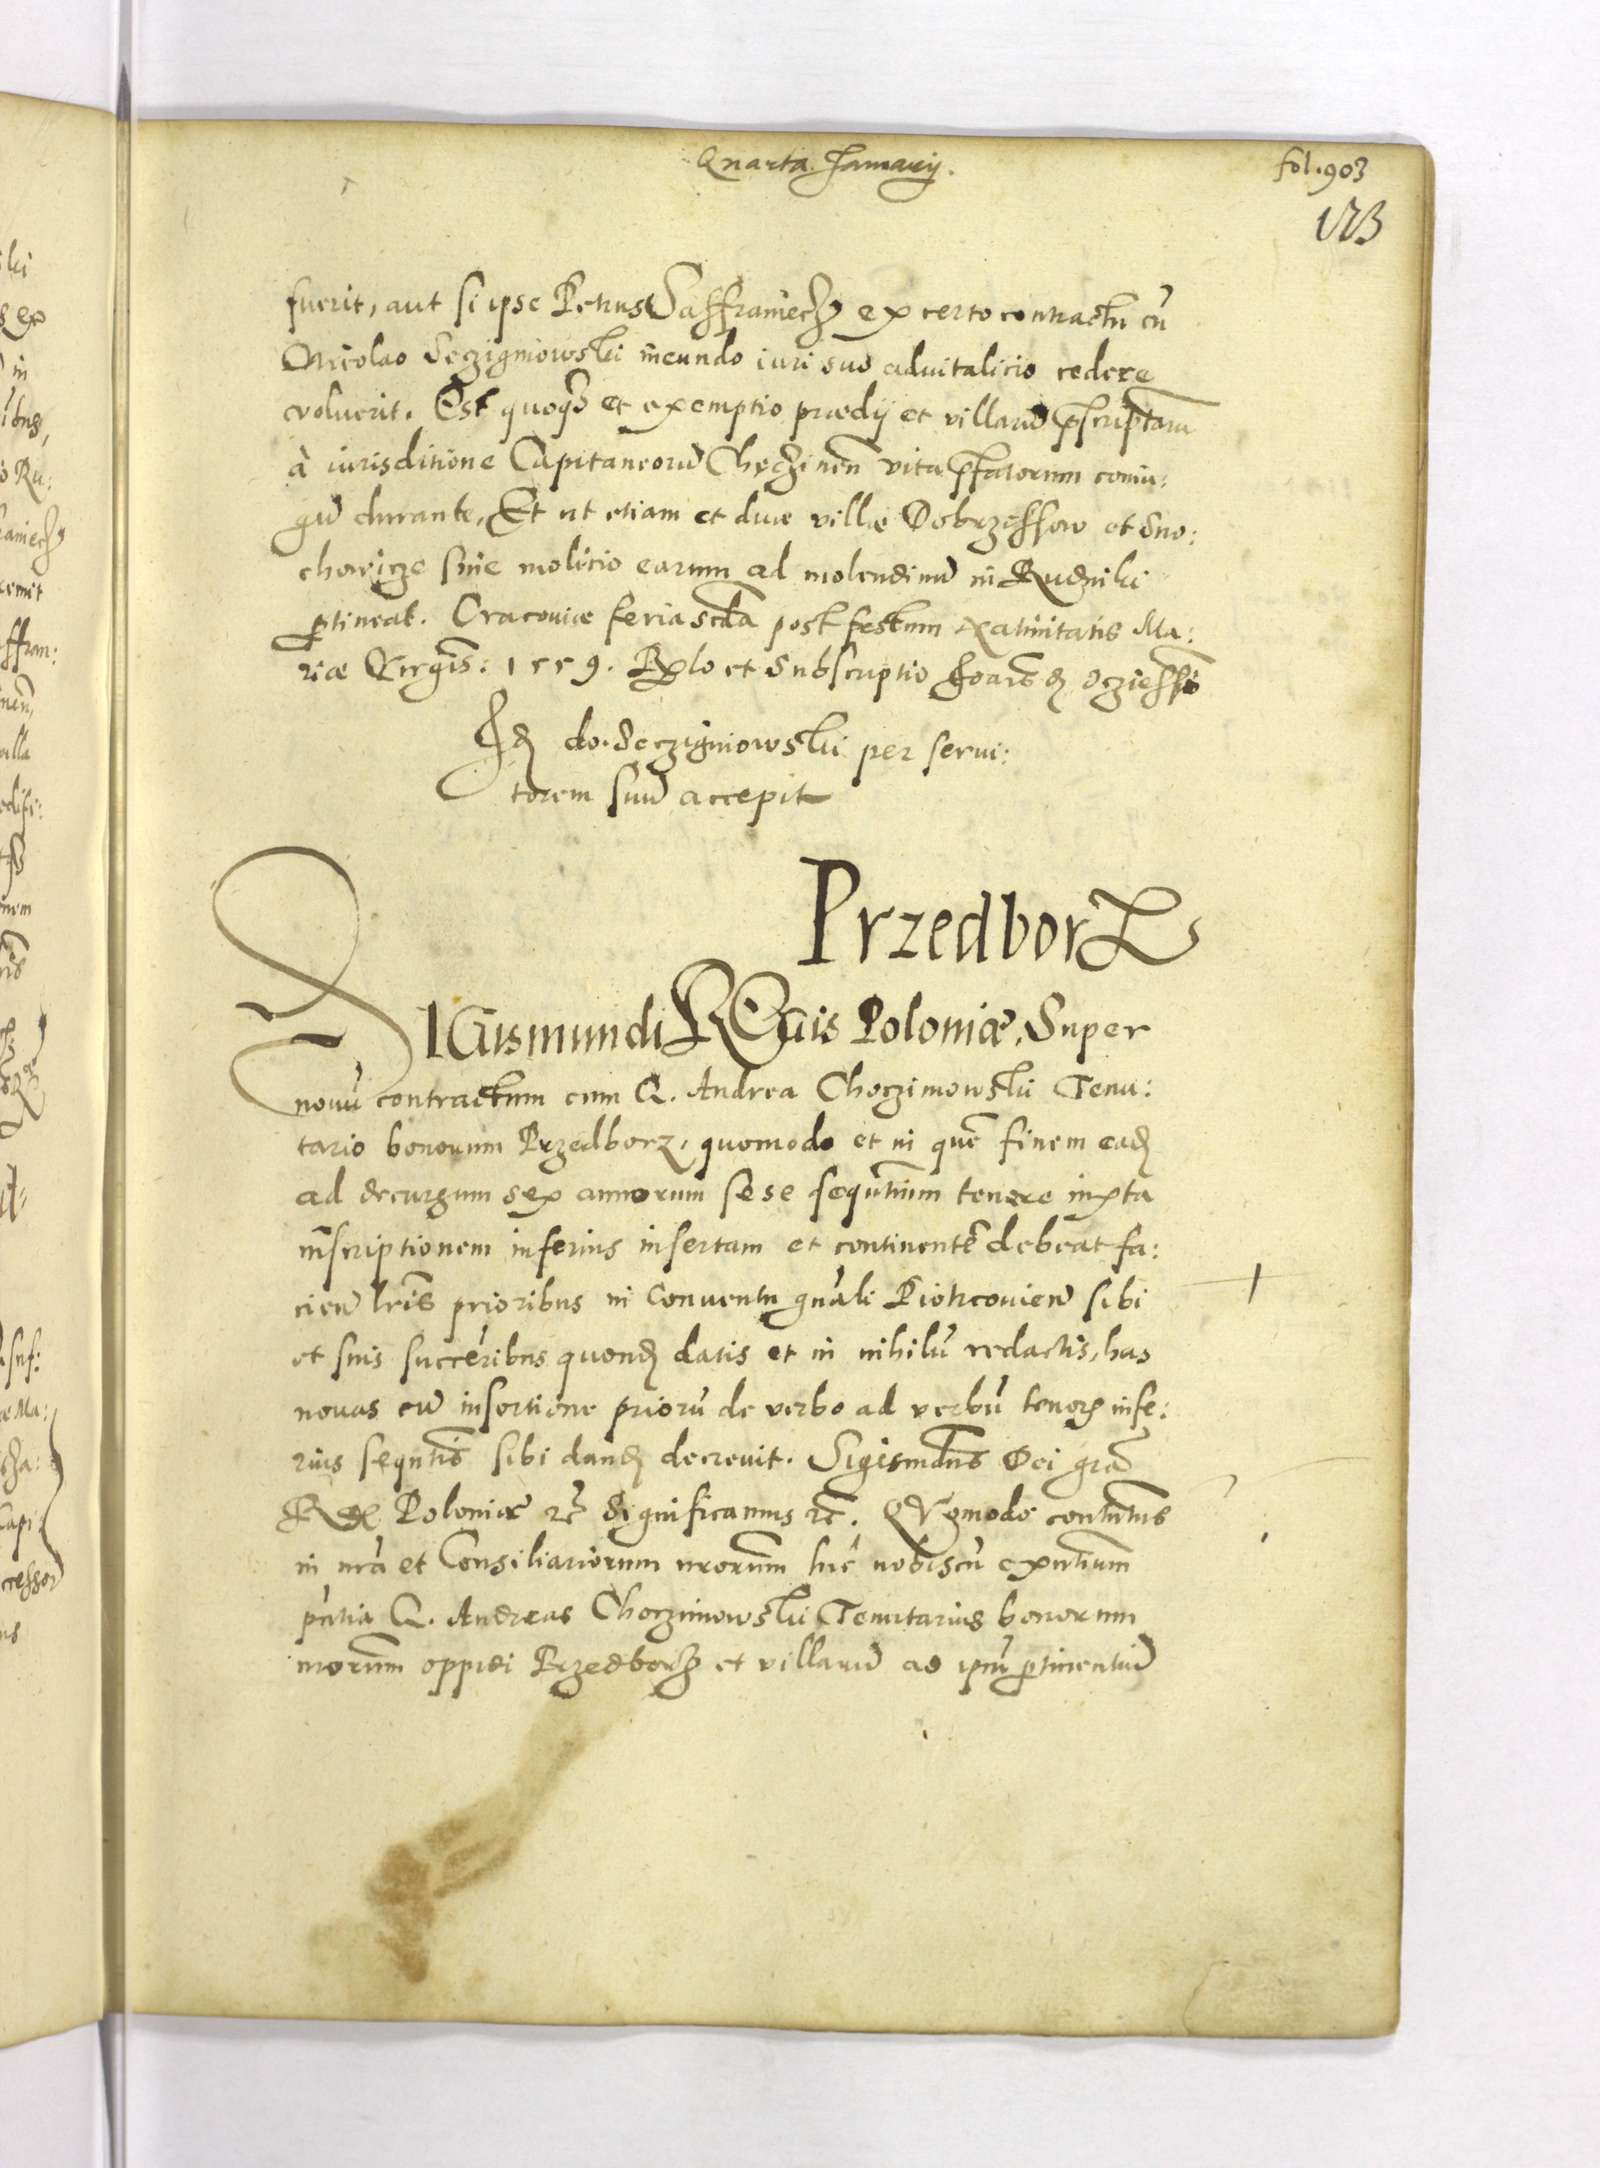 Quarta Januarij.
fol. 903
173
fuerit, aut si ipse Petrus Saffraniecz ex certo contractu cũ
Nicolao Seczigniowski ineundo iuri suo aduitalicio cedere
voluerit. Est quoqȝ et exemptio prædij et villarũ p̃scriptarũ
à iurisditione Capitaneorũ Checzinen̄ vita p̃fatorum coniu:
gũ durante, Et ut etiam et duæ villæ Dobrzessow et Sno:
chowicze sine molicio earum ad molendinũ in Rudniki
ꝑtineat. Cracoviæ feria scda post festum Natiuitatis Ma:
riæ Virgis: 1559. Rxlo et Subscriptio Joaĩs Oczieski
do. Seczigniowski per serui:
torem suũ accepit
Przedborz
SIGismundi REGis Poloniæ, Super
nouũ contractum cum G. Andrea Choczimowski Tenu:
tario bonorum Przedborz, quomodo et in quẽ finem eadȝ
ad decursum sex annorum sese sequẽtium tenere iuxta
inscriptionem inferius insertam et continentẽ debeat fa:
cien̄ lrĩs prioribus in Conuentu gn̄ali Piotrcouien̄ sibi
et suis succẽribus quondȝ datis et in nihilũ redactis, has
nouas cũ insertione priorũ de verbo ad verbũ tenorȝ infe:
rius sequẽtis sibi dandȝ decreuit. Sigismdus Dei grã
REX Poloniæ &c̃ Significamus &c̃. QVomodo contẽtus
in nrã et Consiliariorum nrorum hic nobiscũ exñtium
pñtia G. Andreas Choczimowski Tenutarius bonorum
nrorum oppidi Przedborz et villarũ ad ipm̃ ꝑtinentiũ